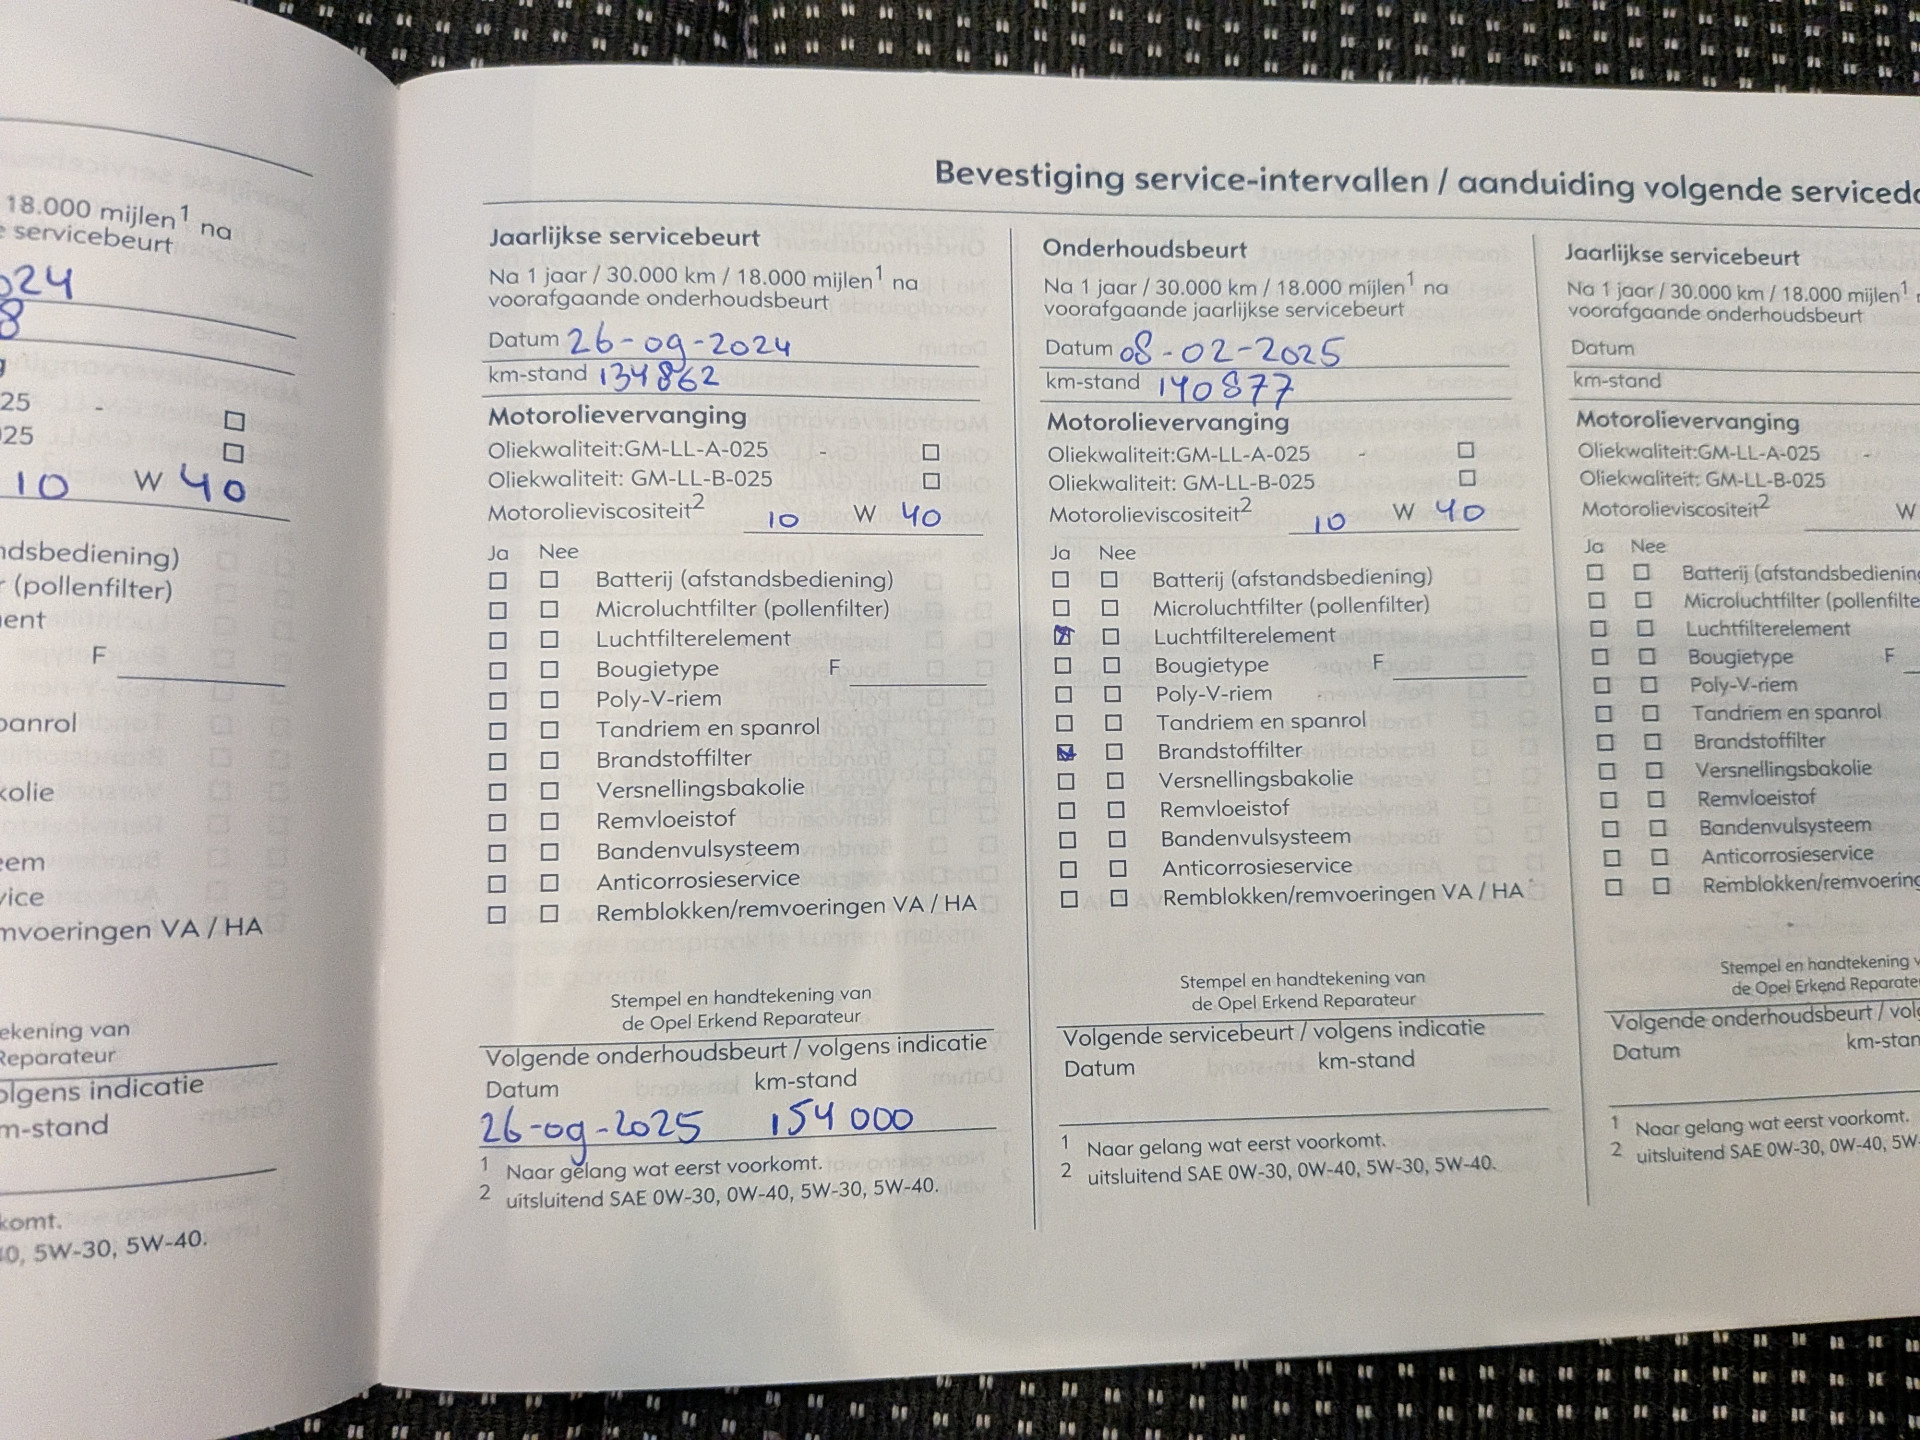 18.000 mijlen1 na
servicebeurt
024
8
25 -
025
10 W 40
ndsbediening)
r (pollenfilter)
ent
F
panrol
kolie
eem
vice
mvoeringen VA / HA
ekening van
Reparateur
olgens indicatie
m-stand
komt.
40, 5W-30, 5W-40.
Bevestiging service-intervallen / aanduiding volgende servicedo
Jaarlijkse servicebeurt
Na 1 jaar / 30.000 km / 18.000 mijlen1 na
voorafgaande onderhoudsbeurt
Datum 26-09-2024
km-stand 134862
Motorolievervanging
Oliekwaliteit:GM-LL-A-025 -
Oliekwaliteit: GM-LL-B-025
Motorolieviscositeit2 10 W 40
Ja Nee
Batterij (afstandsbediening)
Microluchtfilter (pollenfilter)
Luchtfilterelement
Bougietype F
Poly-V-riem
Tandriem en spanrol
Brandstoffilter
Versnellingsbakolie
Remvloeistof
Bandenvulsysteem
Anticorrosieservice
Remblokken/remvoeringen VA / HA
Stempel en handtekening van
de Opel Erkend Reparateur
Volgende onderhoudsbeurt / volgens indicatie
Datum km-stand
26-09-2025 154 000
1 Naar gelang wat eerst voorkomt.
2 uitsluitend SAE 0W-30, 0W-40, 5W-30, 5W-40.
Onderhoudsbeurt
Na 1 jaar / 30.000 km / 18.000 mijlen1 na
voorafgaande jaarlijkse servicebeurt
Datum 08-02-2025
km-stand 140877
Motorolievervanging
Oliekwaliteit:GM-LL-A-025 -
Oliekwaliteit: GM-LL-B-025
Motorolieviscositeit2 10 W 40
Ja Nee
Batterij (afstandsbediening)
Microluchtfilter (pollenfilter)
Luchtfilterelement
Bougietype F
Poly-V-riem
Tandriem en spanrol
Brandstoffilter
Versnellingsbakolie
Remvloeistof
Bandenvulsysteem
Anticorrosieservice
Remblokken/remvoeringen VA / HA
Stempel en handtekening van
de Opel Erkend Reparateur
Volgende servicebeurt / volgens indicatie
Datum km-stand
1 Naar gelang wat eerst voorkomt.
2 uitsluitend SAE 0W-30, 0W-40, 5W-30, 5W-40.
Jaarlijkse servicebeurt
Na 1 jaar / 30.000 km / 18.000 mijlen1
voorafgaande onderhoudsbeurt
Datum
km-stand
Motorolievervanging
Oliekwaliteit:GM-LL-A-025 -
Oliekwaliteit: GM-LL-B-025
Motorolieviscositeit2 W
Ja Nee
Batterij (afstandsbediening
Microluchtfilter (pollenfilte
Luchtfilterelement
Bougietype F
Poly-V-riem
Tandriem en spanrol
Brandstoffilter
Versnellingsbakolie
Remvloeistof
Bandenvulsysteem
Anticorrosieservice
Remblokken/remvoering
Stempel en handtekening v
de Opel Erkend Reparate
Volgende onderhoudsbeurt / volg
Datum km-stan
1 Naar gelang wat eerst voorkomt.
2 uitsluitend SAE 0W-30, 0W-40, 5W-